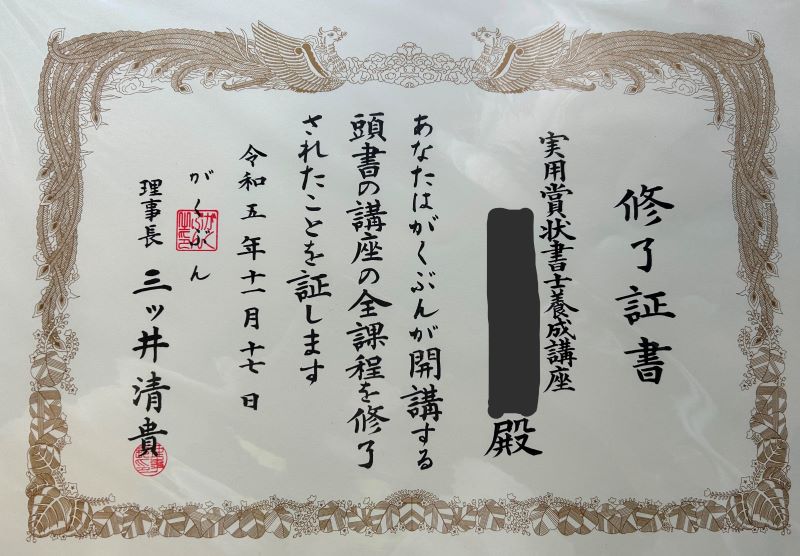 修了証書
実用賞状書士養成講座
殿
あなたはがくぶんが開講する
頭書の講座の全課程を修了
されたことを証します
令和五年十一月十七日
がくぶん
理事長 三ッ井清貴